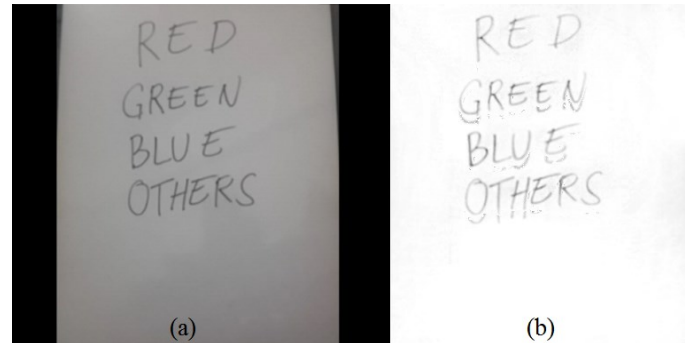 RED
GREEN
BLUE
OTHERS
(a)
RED
GREEN
BLUE
OTHERS
(b)